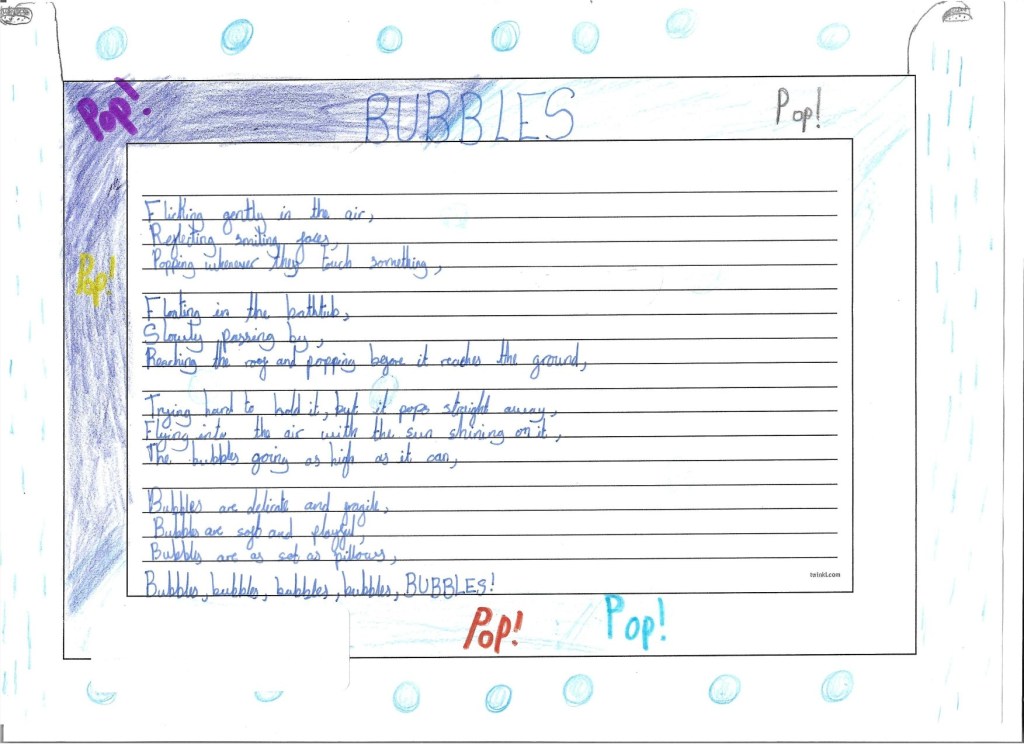 Pop!
BUBBLES
Pop!
Flicking gently in the air,
Reflecting smiling faces,
Popping whenever they touch something,
Pop!
Floating in the bathtub,
Slowly passing by,
Reaching the roof and popping before it reaches the ground,
Trying hard to hold it, but it pops straight away,
Flying into the air with the sun shining on it,
The bubbles going as high as it can,
Bubbles are delicate and fragile,
Bubbles are soft and playful,
Bubbles are as sof as pillows,
Bubbles, bubbles, bubbles, bubbles, BUBBLES!
twinkl.com
Pop!
Pop!